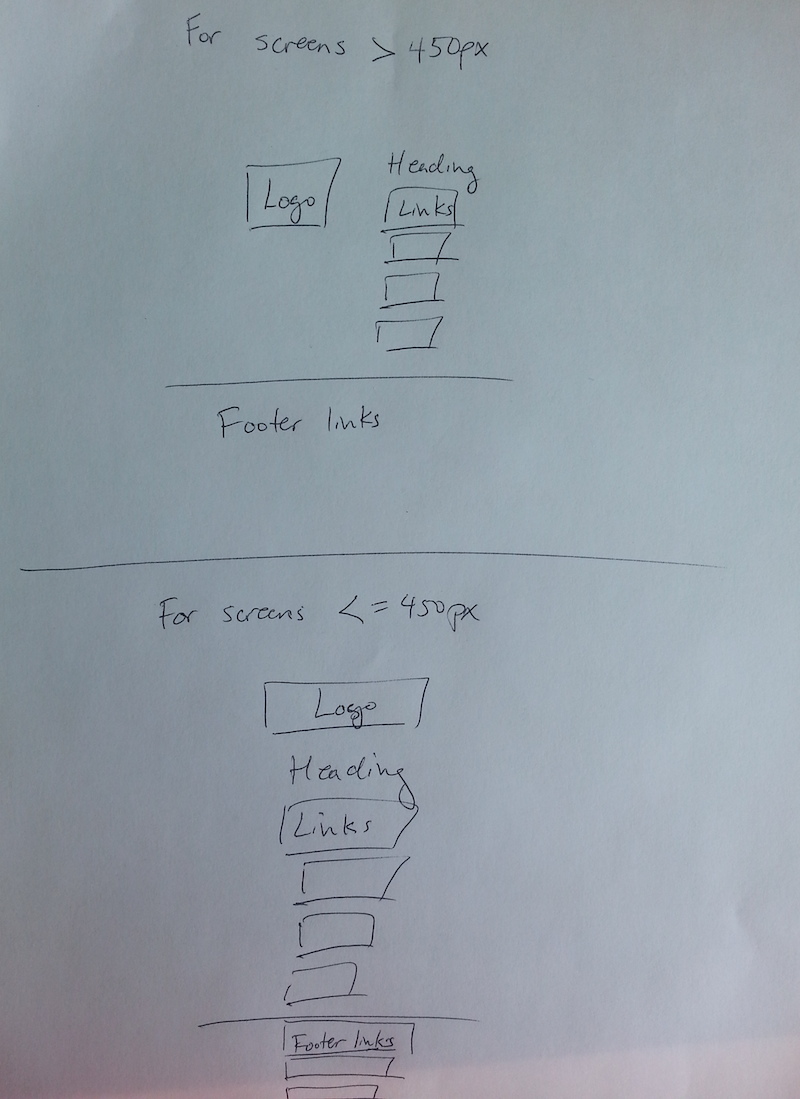 For screens > 450px
Logo
Heading
Links
Footer links
For screens <= 450px
Logo
Heading
Links
Footer links